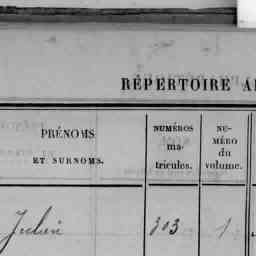 RÉPERTOIRE A
PRÉNOMS
ET SURNOMS.
NUMÉROS
ma-
tricules.
NU-
MÉRO
du
volume.
Julien 303 1